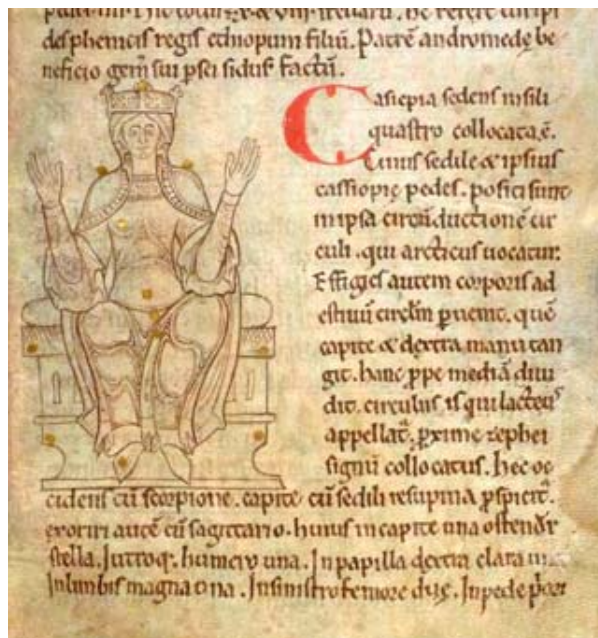 de phenicis regis ethiopum filiū. Patrē andromedę be
neficio gemsui psei sidus factū.
Casiepia sedens insili
quastro collocata, ē.
Cuius sedile & ipsius
cassiopię pedes. positi sunt
in ipsa circūductione cir
culi. qui arcticus uocatur.
Effigies autem corporis ad
estiuū circłm puenit. quē
capite & dextra manu tan
git. hanc ppe mediā diui
dit. circulus is qui lacteus
appellat. pxime zephei
signū collocatus. hec oc
cidens cū scorpione. capite cū sedili resupina pspicit.
exoriri autē cū sagittario. huius in capite una ostendr
stella. In utroq. humero una. In papilla dextra clara una
In lumbis magna una. In sinistro femore duę. In pede